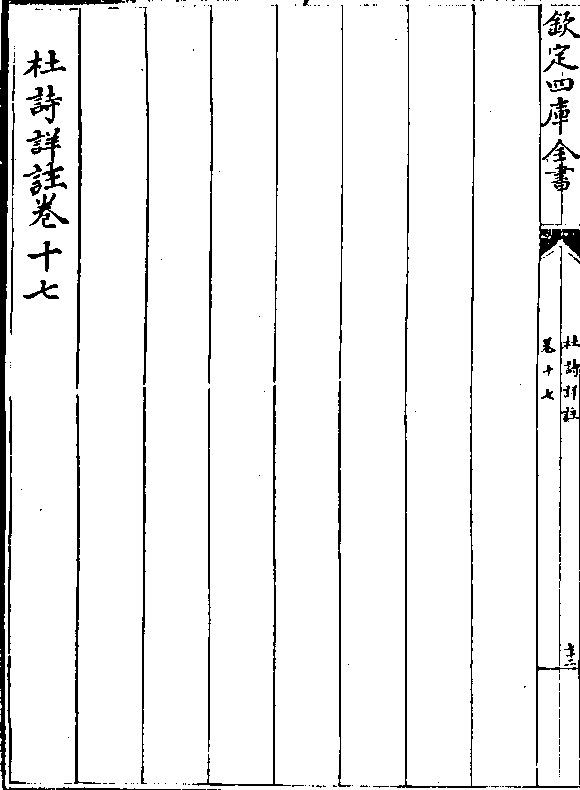 欽定四庫全書
杜詩詳註
卷十七
杜詩詳註卷十七